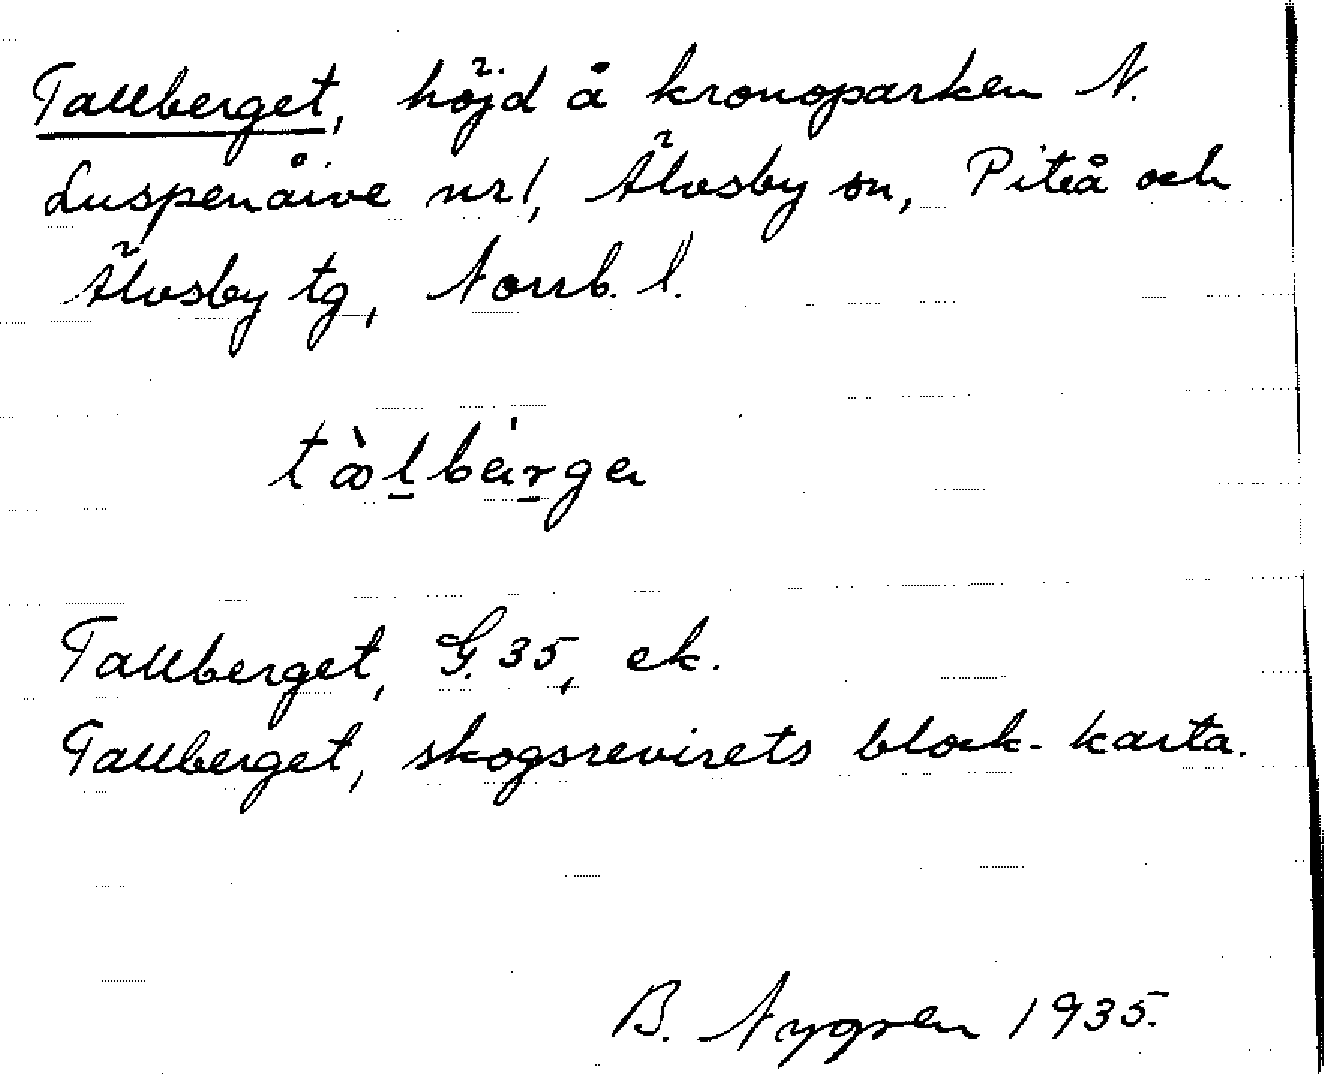 Tallberget, höjd å kronoparken N.
Luspenåive nr 1, Älvsby sn, Piteå och
Älvsby tg, Norrb. l.
tàl̲bär̲ga
Tallberget, G. 35, ek.
Tallberget, skogsrevirets block-karta.
B. Nygren 1935.